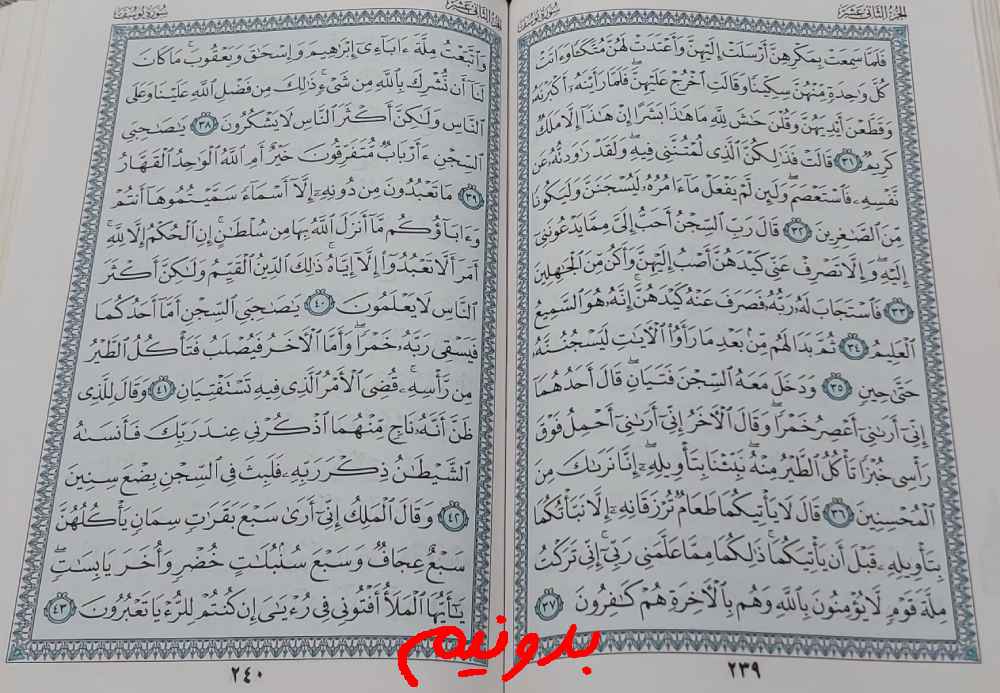 الجزء الثاني عشر
سورة يوسف
فَلَمَّا سَمِعَتْ بِمَكْرِهِنَّ أَرْسَلَتْ إِلَيْهِنَّ وَأَعْتَدَتْ لَهُنَّ مُتَّكَـًٔا وَءَاتَتْ
كُلَّ وَاحِدَةٍ مِّنْهُنَّ سِكِّينًا وَقَالَتِ ٱخْرُجْ عَلَيْهِنَّ فَلَمَّا رَأَيْنَهُۥٓ أَكْبَرْنَهُۥ
وَقَطَّعْنَ أَيْدِيَهُنَّ وَقُلْنَ حَٰشَ لِلَّهِ مَا هَٰذَا بَشَرًا إِنْ هَٰذَآ إِلَّا مَلَكٌ
كَرِيمٌ ٣١ قَالَتْ فَذَٰلِكُنَّ ٱلَّذِى لُمْتُنَّنِى فِيهِ وَلَقَدْ رَٰوَدتُّهُۥ عَن
نَّفْسِهِۦ فَٱسْتَعْصَمَ وَلَئِن لَّمْ يَفْعَلْ مَآ ءَامُرُهُۥ لَيُسْجَنَنَّ وَلَيَكُونًا
مِّنَ ٱلصَّٰغِرِينَ ٣٢ قَالَ رَبِّ ٱلسِّجْنُ أَحَبُّ إِلَىَّ مِمَّا يَدْعُونَنِىٓ
إِلَيْهِ وَإِلَّا تَصْرِفْ عَنِّى كَيْدَهُنَّ أَصْبُ إِلَيْهِنَّ وَأَكُن مِّنَ ٱلْجَٰهِلِينَ
٣٣ فَٱسْتَجَابَ لَهُۥ رَبُّهُۥ فَصَرَفَ عَنْهُ كَيْدَهُنَّ إِنَّهُۥ هُوَ ٱلسَّمِيعُ
ٱلْعَلِيمُ ٣٤ ثُمَّ بَدَا لَهُم مِّنۢ بَعْدِ مَا رَأَوُا۟ ٱلْءَايَٰتِ لَيَسْجُنُنَّهُۥ
حَتَّىٰ حِينٍ ٣٥ وَدَخَلَ مَعَهُ ٱلسِّجْنَ فَتَيَانِ قَالَ أَحَدُهُمَآ
إِنِّىٓ أَرَىٰنِىٓ أَعْصِرُ خَمْرًا وَقَالَ ٱلْءَاخَرُ إِنِّىٓ أَرَىٰنِىٓ أَحْمِلُ فَوْقَ
رَأْسِى خُبْزًا تَأْكُلُ ٱلطَّيْرُ مِنْهُ نَبِّئْنَا بِتَأْوِيلِهِۦٓ إِنَّا نَرَىٰكَ مِنَ
ٱلْمُحْسِنِينَ ٣٦ قَالَ لَا يَأْتِيكُمَا طَعَامٌ تُرْزَقَانِهِۦٓ إِلَّا نَبَّأْتُكُمَا
بِتَأْوِيلِهِۦ قَبْلَ أَن يَأْتِيَكُمَا ذَٰلِكُمَا مِمَّا عَلَّمَنِى رَبِّىٓ إِنِّى تَرَكْتُ
مِلَّةَ قَوْمٍ لَّا يُؤْمِنُونَ بِٱللَّهِ وَهُم بِٱلْءَاخِرَةِ هُمْ كَٰفِرُونَ ٣٧
٢٣٩
الجزء الثاني عشر
سورة يوسف
وَٱتَّبَعْتُ مِلَّةَ ءَابَآءِىٓ إِبْرَٰهِيمَ وَإِسْحَٰقَ وَيَعْقُوبَ مَا كَانَ
لَنَآ أَن نُّشْرِكَ بِٱللَّهِ مِن شَىْءٍ ذَٰلِكَ مِن فَضْلِ ٱللَّهِ عَلَيْنَا وَعَلَى
ٱلنَّاسِ وَلَٰكِنَّ أَكْثَرَ ٱلنَّاسِ لَا يَشْكُرُونَ ٣٨ يَٰصَىٰحِبَىِ
ٱلسِّجْنِ ءَأَرْبَابٌ مُّتَفَرِّقُونَ خَيْرٌ أَمِ ٱللَّهُ ٱلْوَٰحِدُ ٱلْقَهَّارُ
٣٩ مَا تَعْبُدُونَ مِن دُونِهِۦٓ إِلَّآ أَسْمَآءً سَمَّيْتُمُوهَآ أَنتُمْ
وَءَابَآؤُكُم مَّآ أَنزَلَ ٱللَّهُ بِهَا مِن سُلْطَٰنٍ إِنِ ٱلْحُكْمُ إِلَّا لِلَّهِ
أَمَرَ أَلَّا تَعْبُدُوٓا۟ إِلَّآ إِيَّاهُ ذَٰلِكَ ٱلدِّينُ ٱلْقَيِّمُ وَلَٰكِنَّ أَكْثَرَ
ٱلنَّاسِ لَا يَعْلَمُونَ ٤٠ يَٰصَىٰحِبَىِ ٱلسِّجْنِ أَمَّآ أَحَدُكُمَا
فَيَسْقِى رَبَّهُۥ خَمْرًا وَأَمَّا ٱلْءَاخَرُ فَيُصْلَبُ فَتَأْكُلُ ٱلطَّيْرُ
مِن رَّأْسِهِۦ قُضِىَ ٱلْأَمْرُ ٱلَّذِى فِيهِ تَسْتَفْتِيَانِ ٤١ وَقَالَ لِلَّذِى
ظَنَّ أَنَّهُۥ نَاجٍ مِّنْهُمَا ٱذْكُرْنِى عِندَ رَبِّكَ فَأَنسَىٰهُ
ٱلشَّيْطَٰنُ ذِكْرَ رَبِّهِۦ فَلَبِثَ فِى ٱلسِّجْنِ بِضْعَ سِنِينَ
٤٢ وَقَالَ ٱلْمَلِكُ إِنِّىٓ أَرَىٰ سَبْعَ بَقَرَٰتٍ سِمَانٍ يَأْكُلُهُنَّ
سَبْعٌ عِجَافٌ وَسَبْعَ سُنۢبُلَٰتٍ خُضْرٍ وَأُخَرَ يَابِسَٰتٍ
يَٰٓأَيُّهَا ٱلْمَلَأُ أَفْتُونِى فِى رُءْيَٰىَ إِن كُنتُمْ لِلرُّءْيَا تَعْبُرُونَ ٤٣
٢٤٠
بدونیم